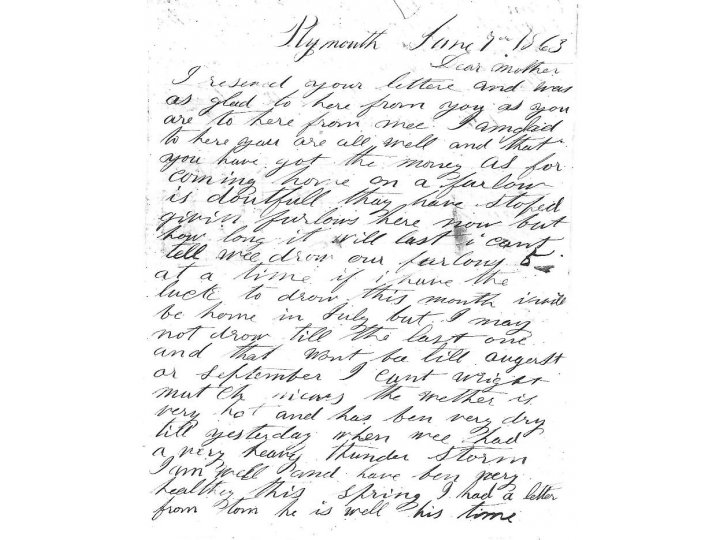 Plymouth June 7th 1863
Dear mother
I reseved your lettere and was
as glad to here from you as you
are to here from mee I amglad
to here you are all well and that
you have got the money as for
coming home on a furlow
is doutfull thay have stoped
givin furlows here now but
how long it will last i cant
tell wee drow our furlows 5
at a time if i have the
luck to drow this month i will
be home in July but I may
not drow till the last one
and that wont bee till augerst
or september I cant wright
mutch the wether is
very hot and has ben very dry
till yesterday when wee had
a very heavy thunder storm
I am well and have ben very
healthy this spring I had a letter
from tom he is well his time